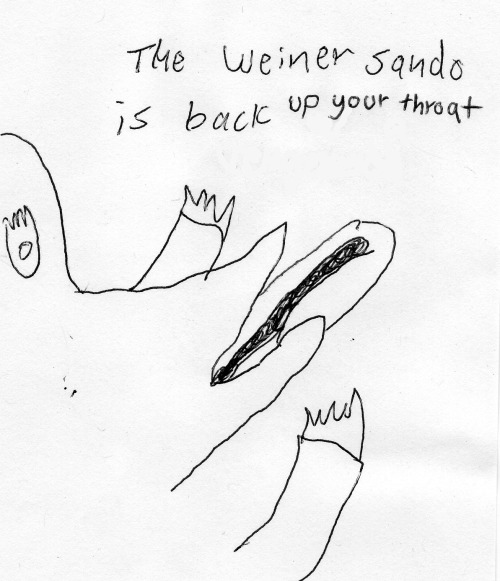 The weiner sando
is back up your throat